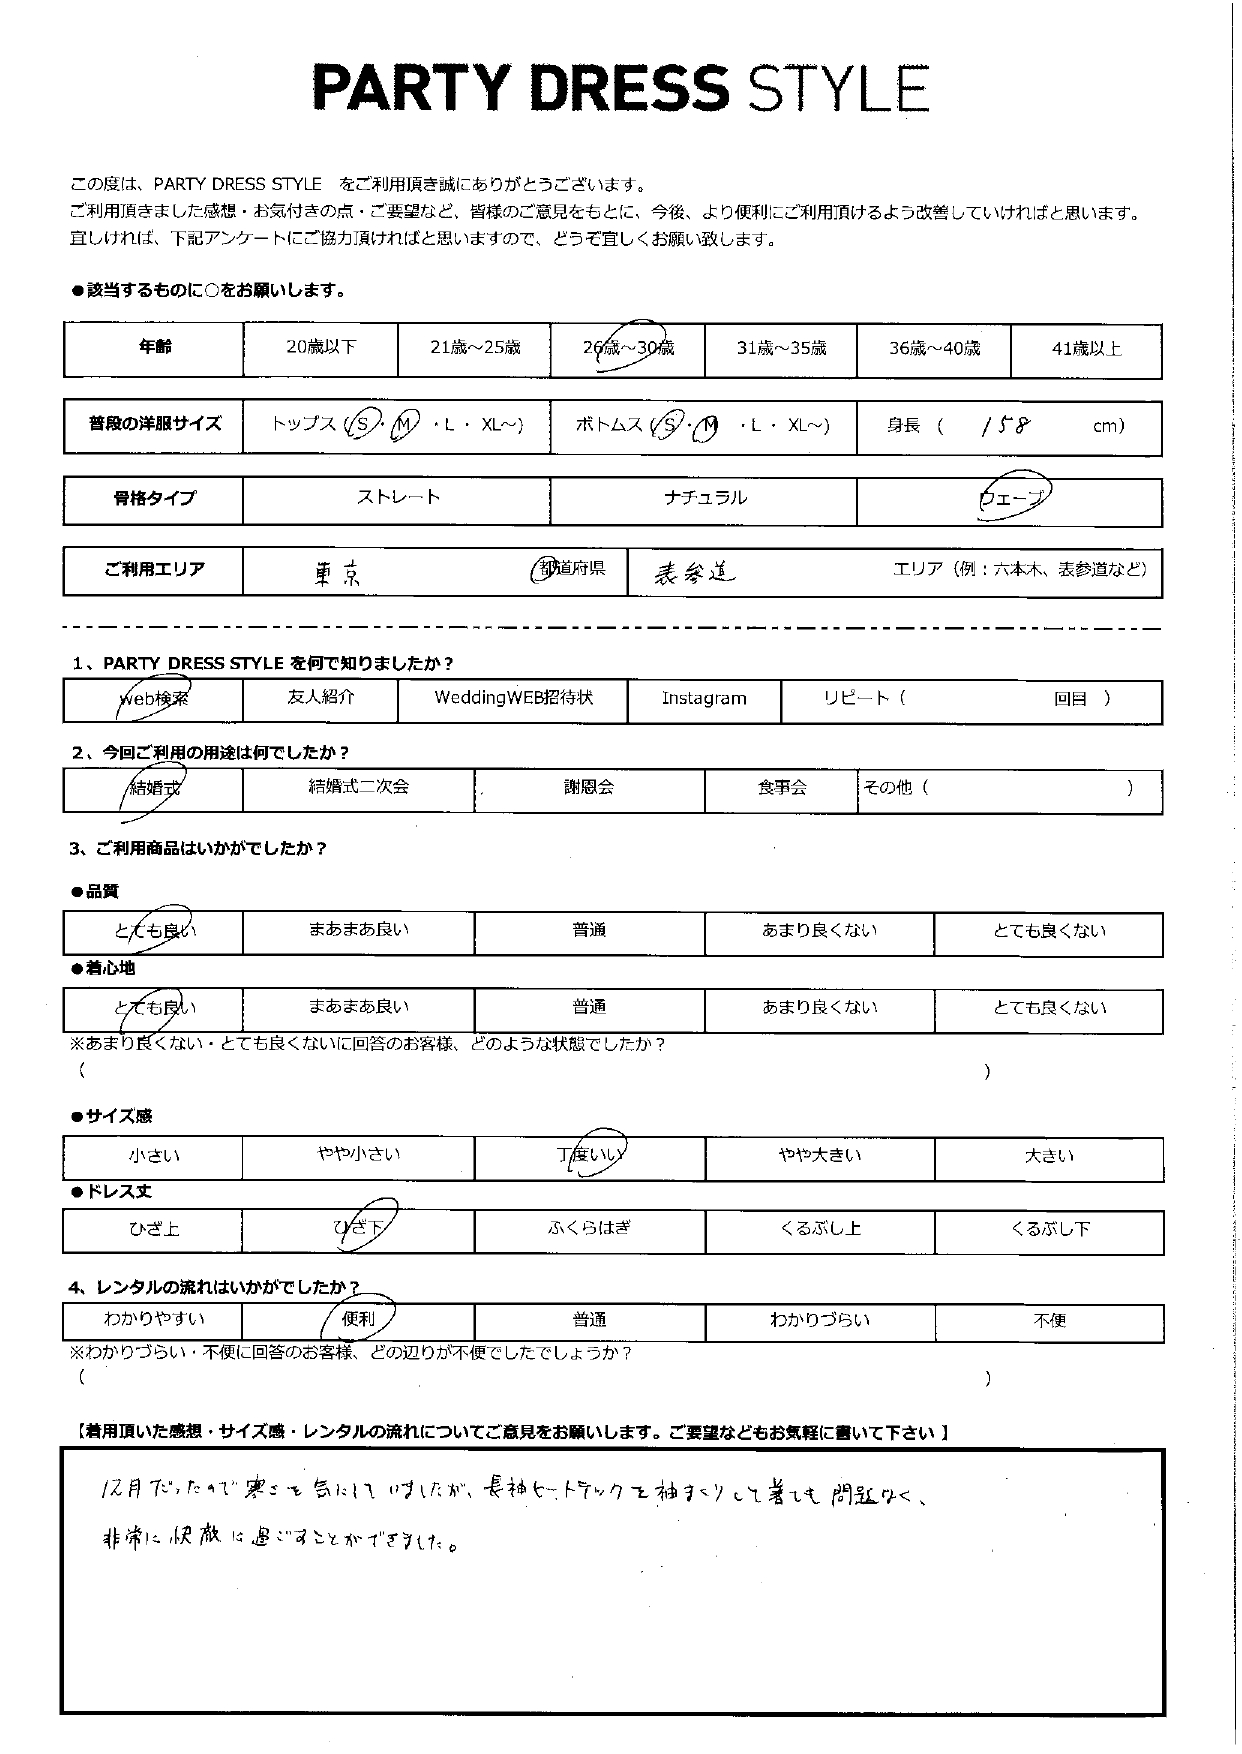 PARTY DRESS STYLE
この度は、PARTY DRESS STYLE　をご利用頂き誠にありがとうございます。
ご利用頂きました感想・お気付きの点・ご要望など、皆様のご意見をもとに、今後、より便利にご利用頂けるよう改善していければと思います。
宜しければ、下記アンケートにご協力頂ければと思いますので、どうぞ宜しくお願い致します。
●該当するものに○をお願いします。
年齢 20歳以下 21歳～25歳 26歳～30歳 31歳～35歳 36歳～40歳 41歳以上
普段の洋服サイズ トップス (S・M ・L ・ XL～) ボトムス (S・M ・L ・ XL～) 身長 ( 158 cm)
骨格タイプ ストレート ナチュラル ウェーブ
ご利用エリア 東京 都道府県 表参道 エリア（例：六本木、表参道など）
1、PARTY DRESS STYLE を何で知りましたか？
web検索 友人紹介 WeddingWEB招待状 Instagram リピート（ 回目 ）
2、今回ご利用の用途は何でしたか？
結婚式 結婚式二次会 謝恩会 食事会 その他（ ）
3、ご利用商品はいかがでしたか？
●品質
とても良い まあまあ良い 普通 あまり良くない とても良くない
●着心地
とても良い まあまあ良い 普通 あまり良くない とても良くない
※あまり良くない・とても良くないに回答のお客様、どのような状態でしたか？
( )
●サイズ感
小さい やや小さい 丁度いい やや大きい 大きい
●ドレス丈
ひざ上 ひざ下 ふくらはぎ くるぶし上 くるぶし下
4、レンタルの流れはいかがでしたか？
わかりやすい 便利 普通 わかりづらい 不便
※わかりづらい・不便に回答のお客様、どの辺りが不便でしたでしょうか？
( )
【着用頂いた感想・サイズ感・レンタルの流れについてご意見をお願いします。ご要望などもお気軽に書いて下さい 】
12月だったので寒さを気にしていましたが、長袖ヒートテックを袖まくりして着ても問題なく、
非常に快敵に過ごすことができました。